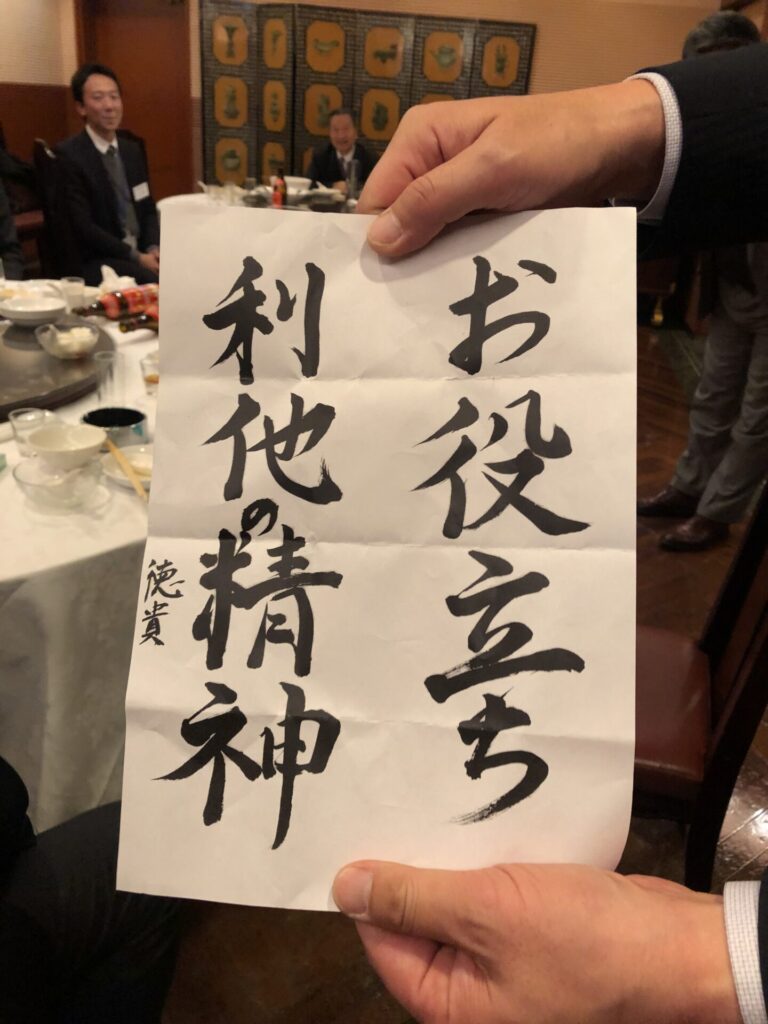 お役立ち
利他の精神
徳貴